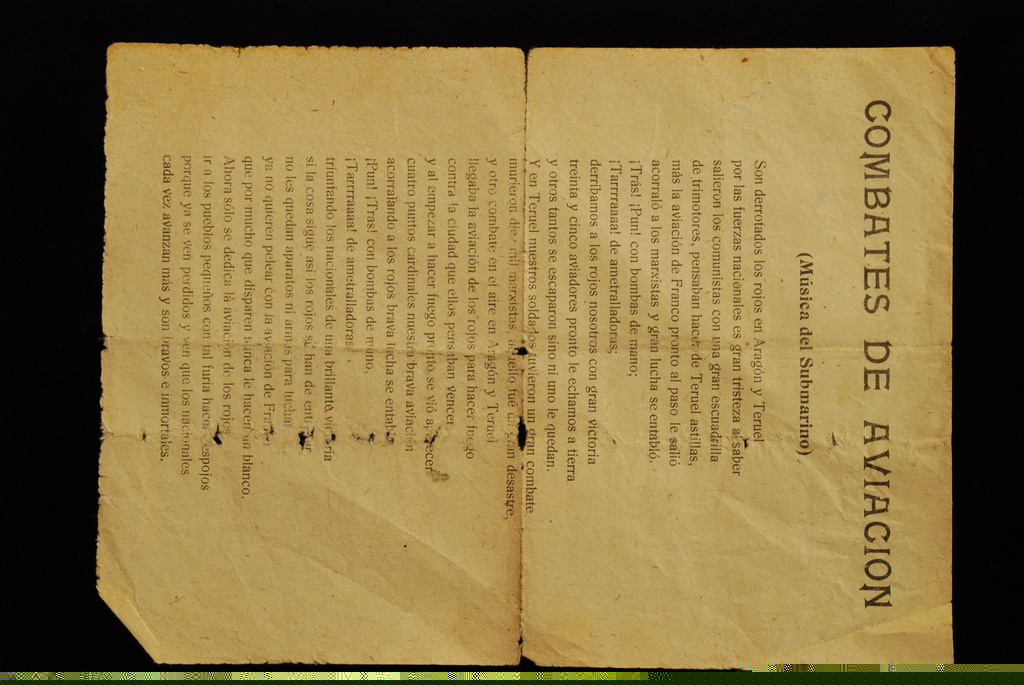 COMBATES DE AVIACION
(Música del Submarino)
Son derrotados los rojos en Aragón y Teruel
por las fuerzas nacionales es gran tristeza al saber
salieron los comunistas con una gran escuadrilla
de trimotores, pensaban hacer de Teruel astillas,
más la aviación de Franco pronto al paso le salió
acorraló a los marxistas y gran lucha se entabló.
¡Trás! ¡Pun! con bombas de mano;
¡Tarrraaaa! de ametralladoras;
derribamos a los rojos nosotros con gran victoria
treinta y cinco aviadores pronto le echamos a tierra
y otros tantos se escaparon sino ni uno le quedan.
Y en Teruel nuestros soldados tuvieron un gran combate
murieron diez mil marxistas, aquello fué un gran desastre,
y otro combate en el aire en Aragón y Teruel
llegaba la aviación de los rojos para hacer fuego
contra la ciudad que ellos pensaban vencer
y al empezar a hacer fuego pronto se vió aparecer
cuatro puntos cardinales nuestra brava aviación
acorralando a los rojos brava lucha se entabló
¡Pun! ¡Tras! con bombas de mano,
¡Tarrraaaa! de ametralladoras
triunfando los nacionales de una brillante victoria
si la cosa sigue así los rojos se han de
no les quedan aparatos ni armas para luchar
ya no quieren pelear con la aviación de Franco
que por mucho que disparen nunca le hacen un blanco.
Ahora sólo se dedica la aviación de los rojos
ir a los pueblos pequeños con tal furia hacer espojos
porque ya se ven perdidos y ven que los nacionales
cada vez avanzan más y son bravos e inmortales.